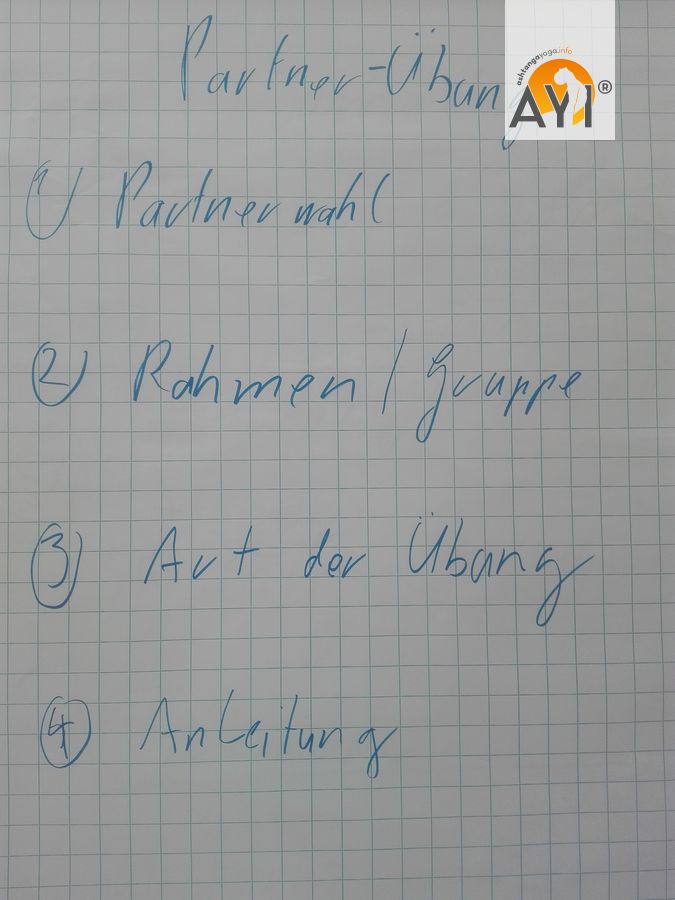 Partner-Übung
ashtangayoga.info
AYI®
1) Partnerwahl
2) Rahmen / Gruppe
3) Art der Übung
4) Anleitung